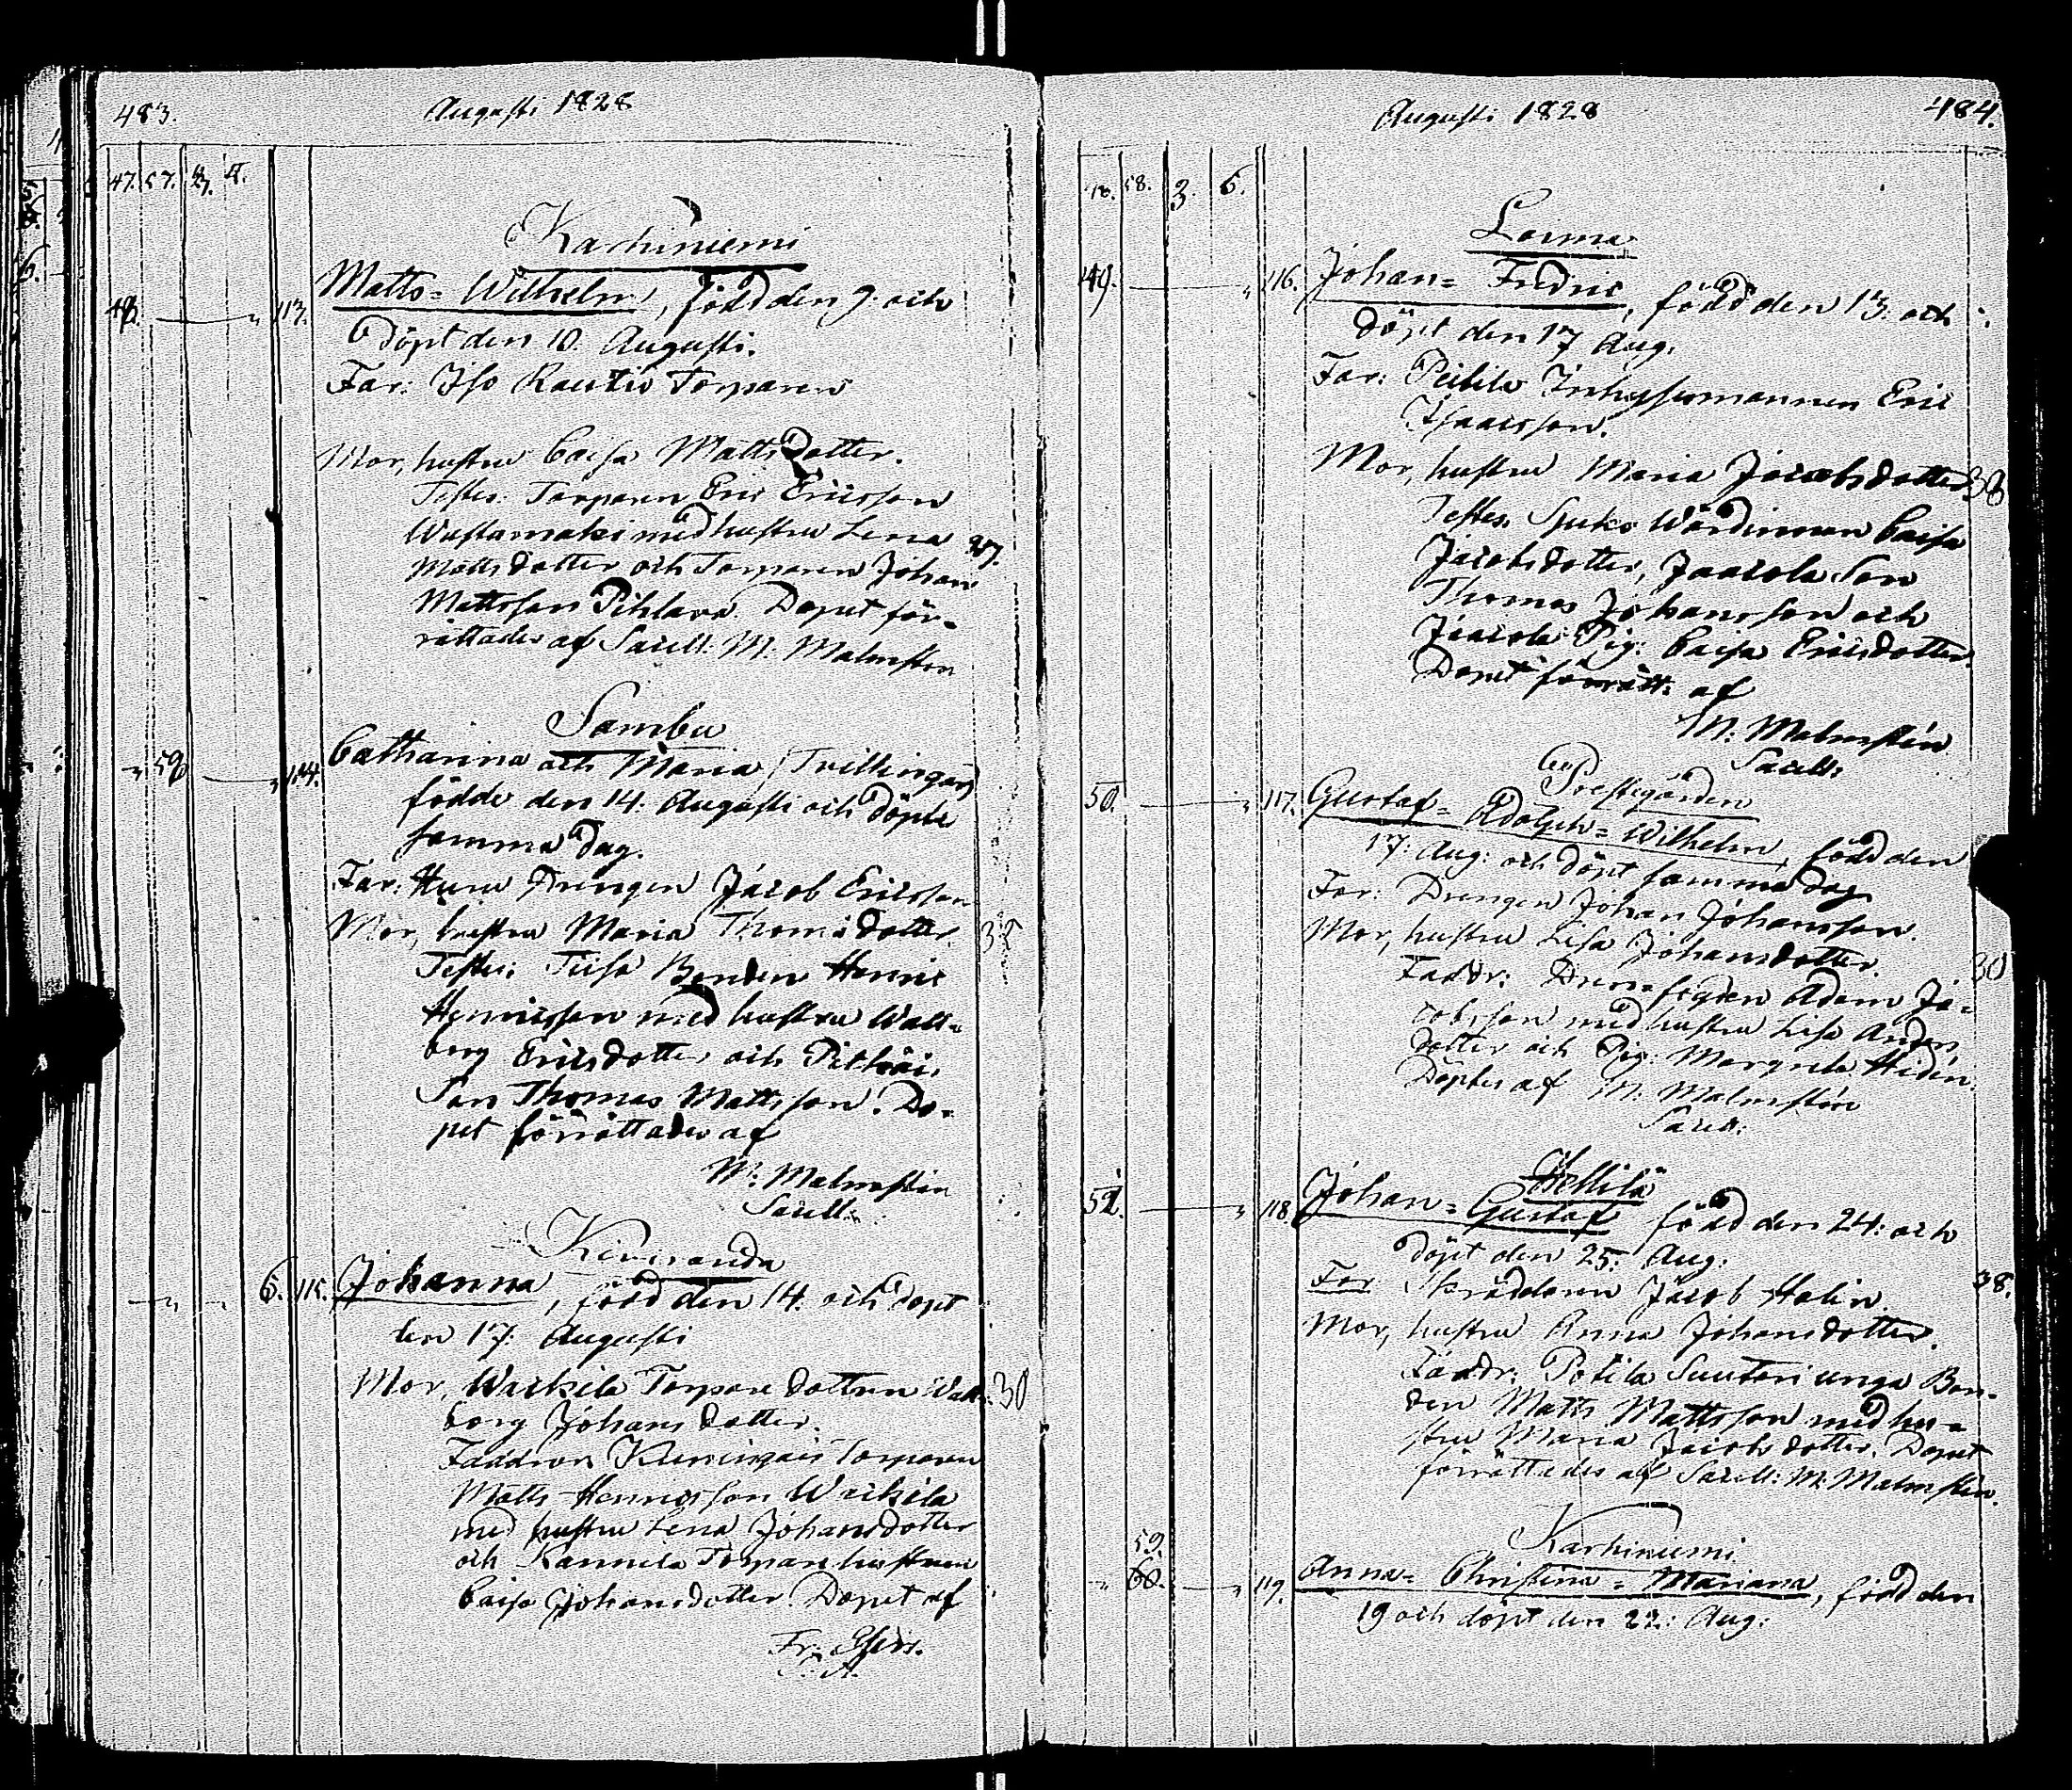 483.
Augusti 1828
47. 57. 2. 4.
Karhiniemi
48. 113. Matts=Wilhelm, född den 9. och
döpt den 10. Augusti.
Far: Iso Rautio Torparen
Mor, hustru Caisa Mattsdotter.
Testes: Torparen Eric Ericsson
med hustru Lena
Mattsdotter och Torparen Johan
Mattsson Pihlava. Doput för-
rättades af Sacell: M: Malmstén
Sambu
59 114. Catharina och Maria (Tvillingar)
födde den 14. Augusti och döpte
samma dag.
Far: Huru Drengen Jacob Ericsson
Mor, hustru Maria Thomasdotter.
Testes: Bonden Henric
Henricsson med hustru Wall-
borg Ericsdotter och
Son Thomas Mattsson. Do-
put förrättades af
M: Malmstén
Sacell:
5. 115. Johanna, född den 14. och döpt
den 17. Augusti
30
Mor, Torpare dottren Wall-
borg Johansdotter.
Faddrar Torparen
Matts Henricsson
med hustru Lena Johansdotter
och Torpare hustrun
Caisa Johansdotter. Doput af
Fr:
484.
Augusti 1828
58. 3. 5.
49. 116. Johan=Fredric, född den 13. och
döpt den 17 Aug.
Far: Inhysesmannen Eric
Isaacsson.
Mor, hustru Maria Jacobsdotter
38
Testes. Wärdinnan Caisa
Jacobsdotter, Jaacola Son
Thomas Johansson och
Jaacola Pig: Caisa Ericsdotter.
Doput förrätt: af
M: Malmstén
Sacell:
Prestegården
50. 117. Gustaf=Adolph=Wilhelm, född den
17. Aug: och döpt samma dag
Far: Drengen Johan Johansson.
Mor, hustru Lisa Johansdotter.
30
Faddr: Adam Ja-
cobsson med hustru Lisa Anders
dotter och Pig: Margreta Hidén.
Döptes af M: Malmstén
Sacell:
118. Johan=Gustaf född den 24. och
döpt den 25. Aug:
38.
Far Skräddaren Jacob Holin.
Mor, hustru Anna Johansdotter.
Faddr: Potila Suutari unga Bon-
den Matts Mattsson med hu-
stru Maria Jacobsdotter. Doput
förrättades af Sacell: M: Malmstén.
Karhiniemi
59.
60. 119. Anna=Christina=Mariana, född den
19 och döpt den 22: Aug: